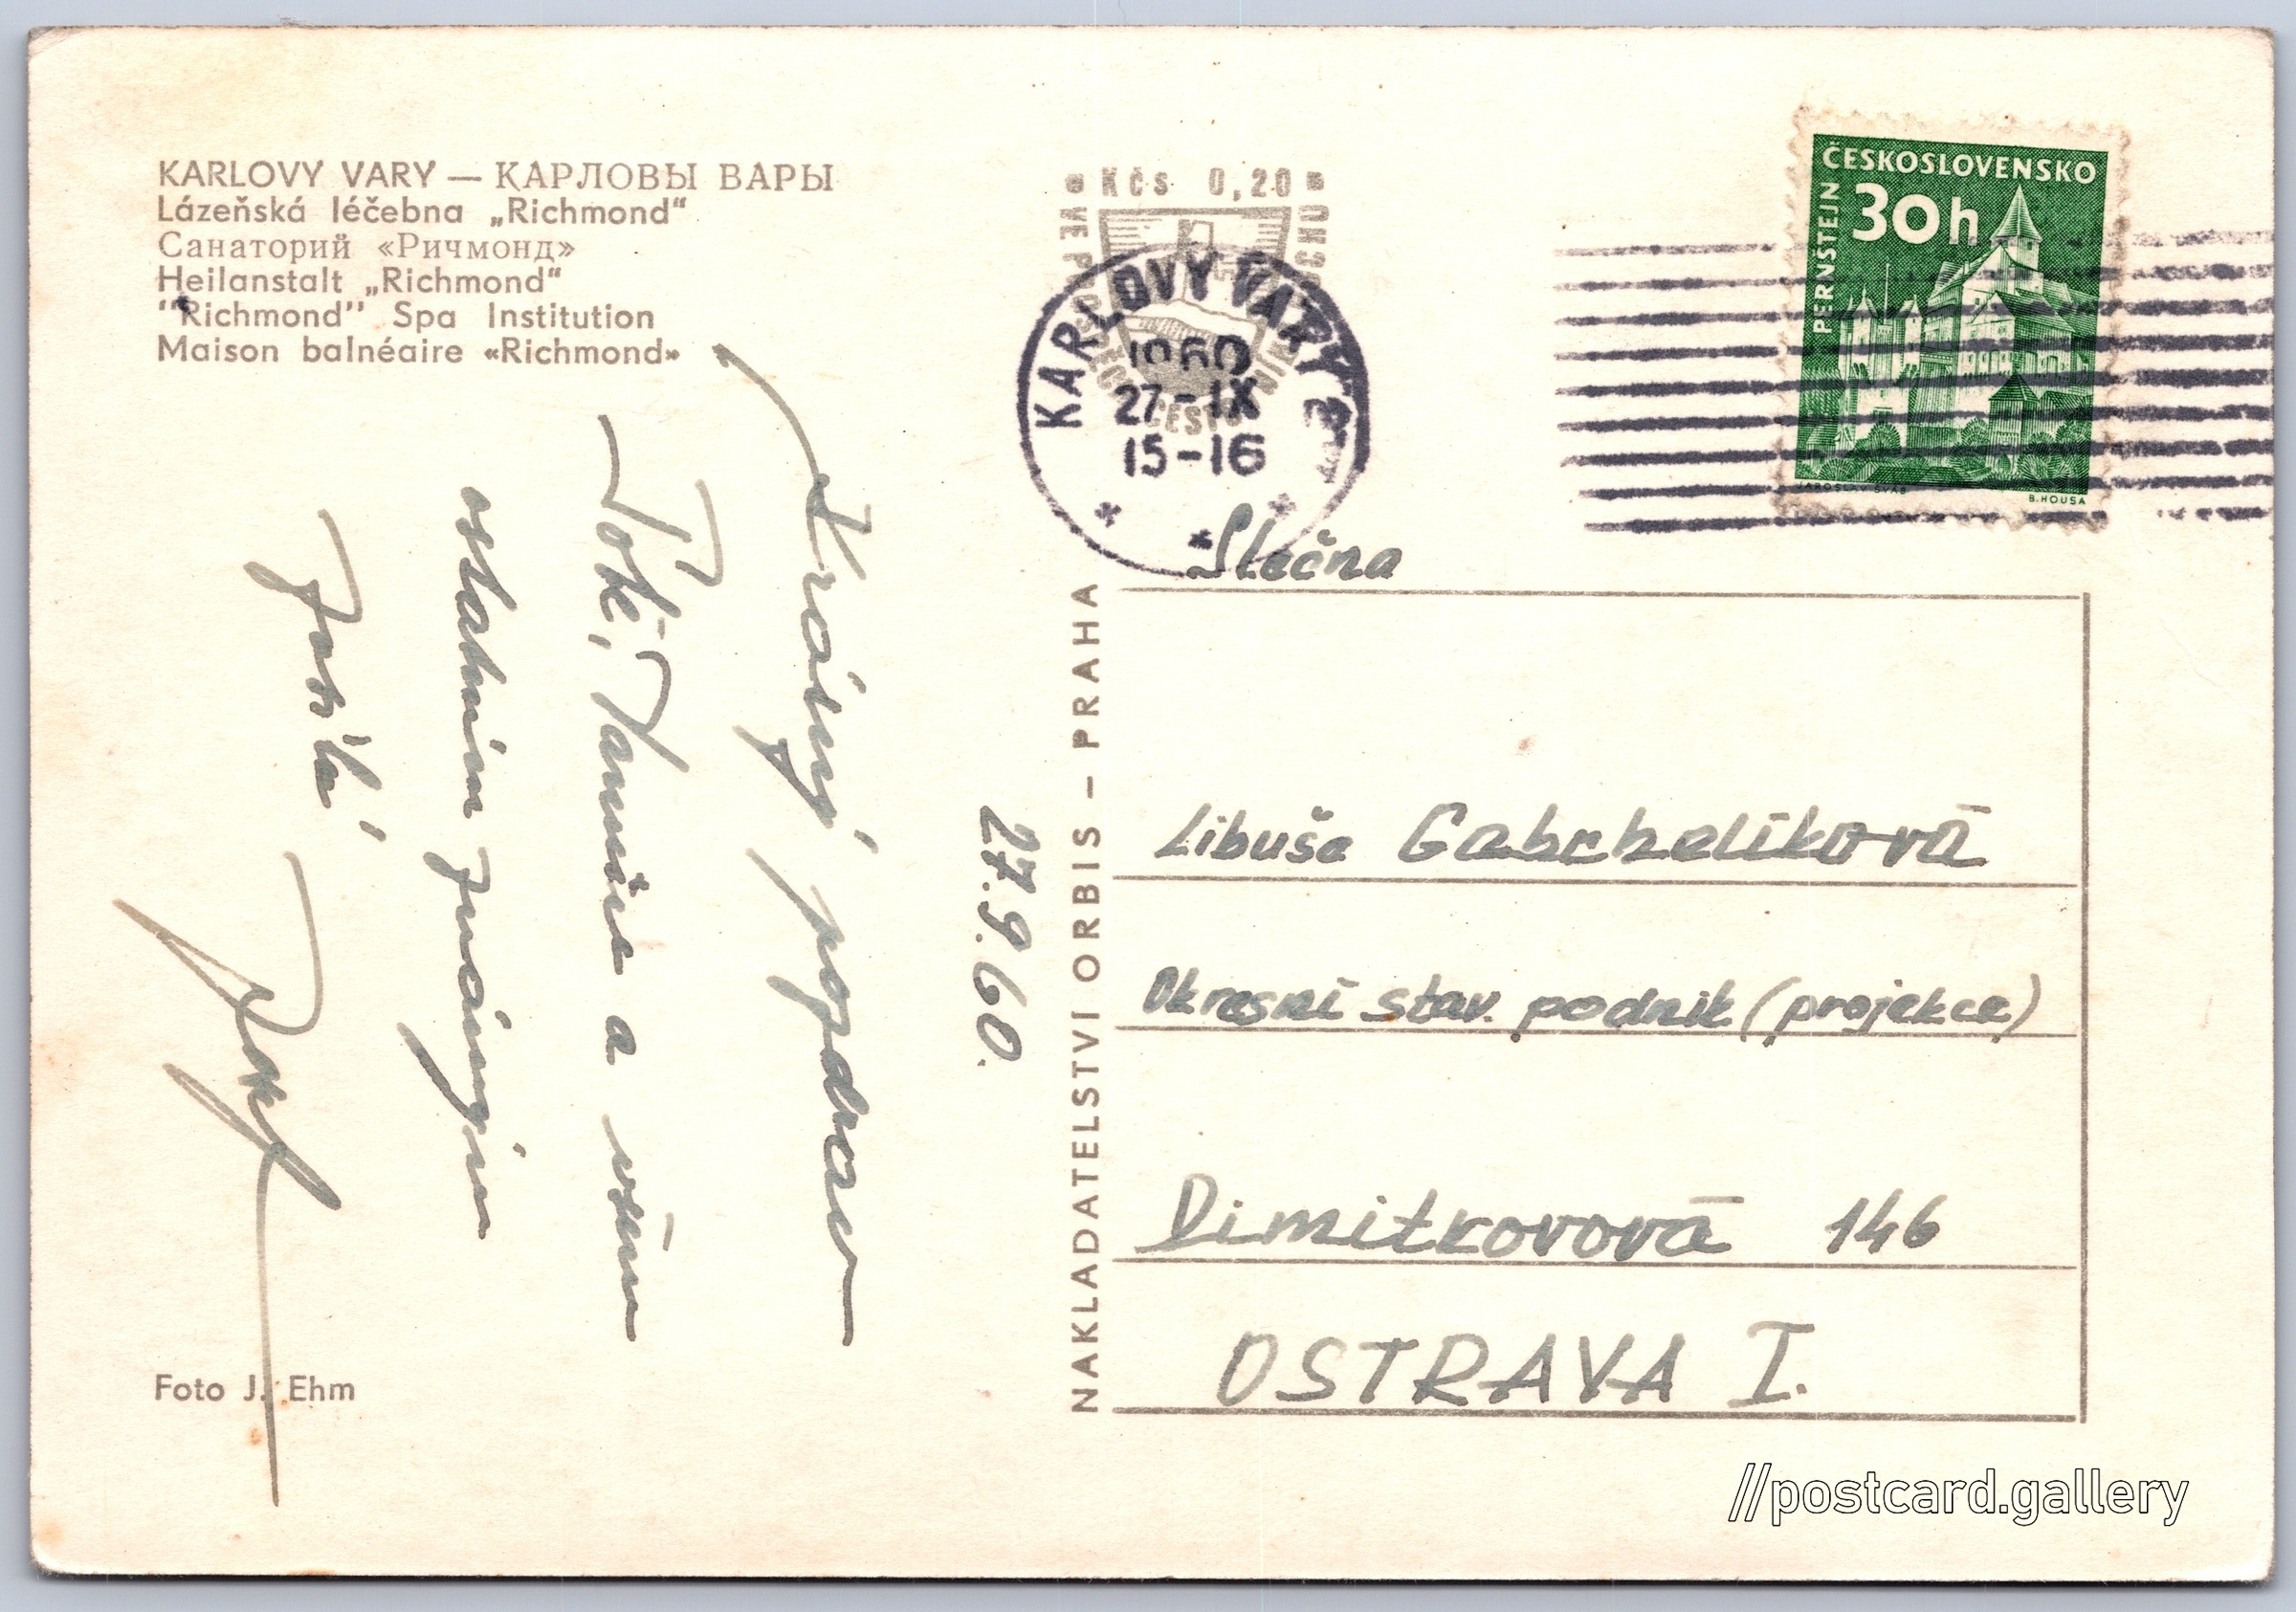 KARLOVY VARY — КАРЛОВЫ ВАРЫ
Lázeňská léčebna „Richmond“
Санаторий «Ричмонд»
Heilanstalt „Richmond“
"Richmond" Spa Institution
Maison balnéaire «Richmond»
Krásný pozdrav
a všem
ostatním známým
27.9.60.
Foto J. Ehm
NAKLADATELSTVI ORBIS – PRAHA
Kčs 0,20
KARLOVY VARY 2
1960
27-IX
15-16
ČESKOSLOVENSKO
30h
PERNŠTEJN
JAROSLAV ŠVÁB
B. HOUSA
Slečna
Libuše Gabrhelíková
Okresní stav. podnik (projekce)
Dimitrovová 146
OSTRAVA I.
//postcard.gallery